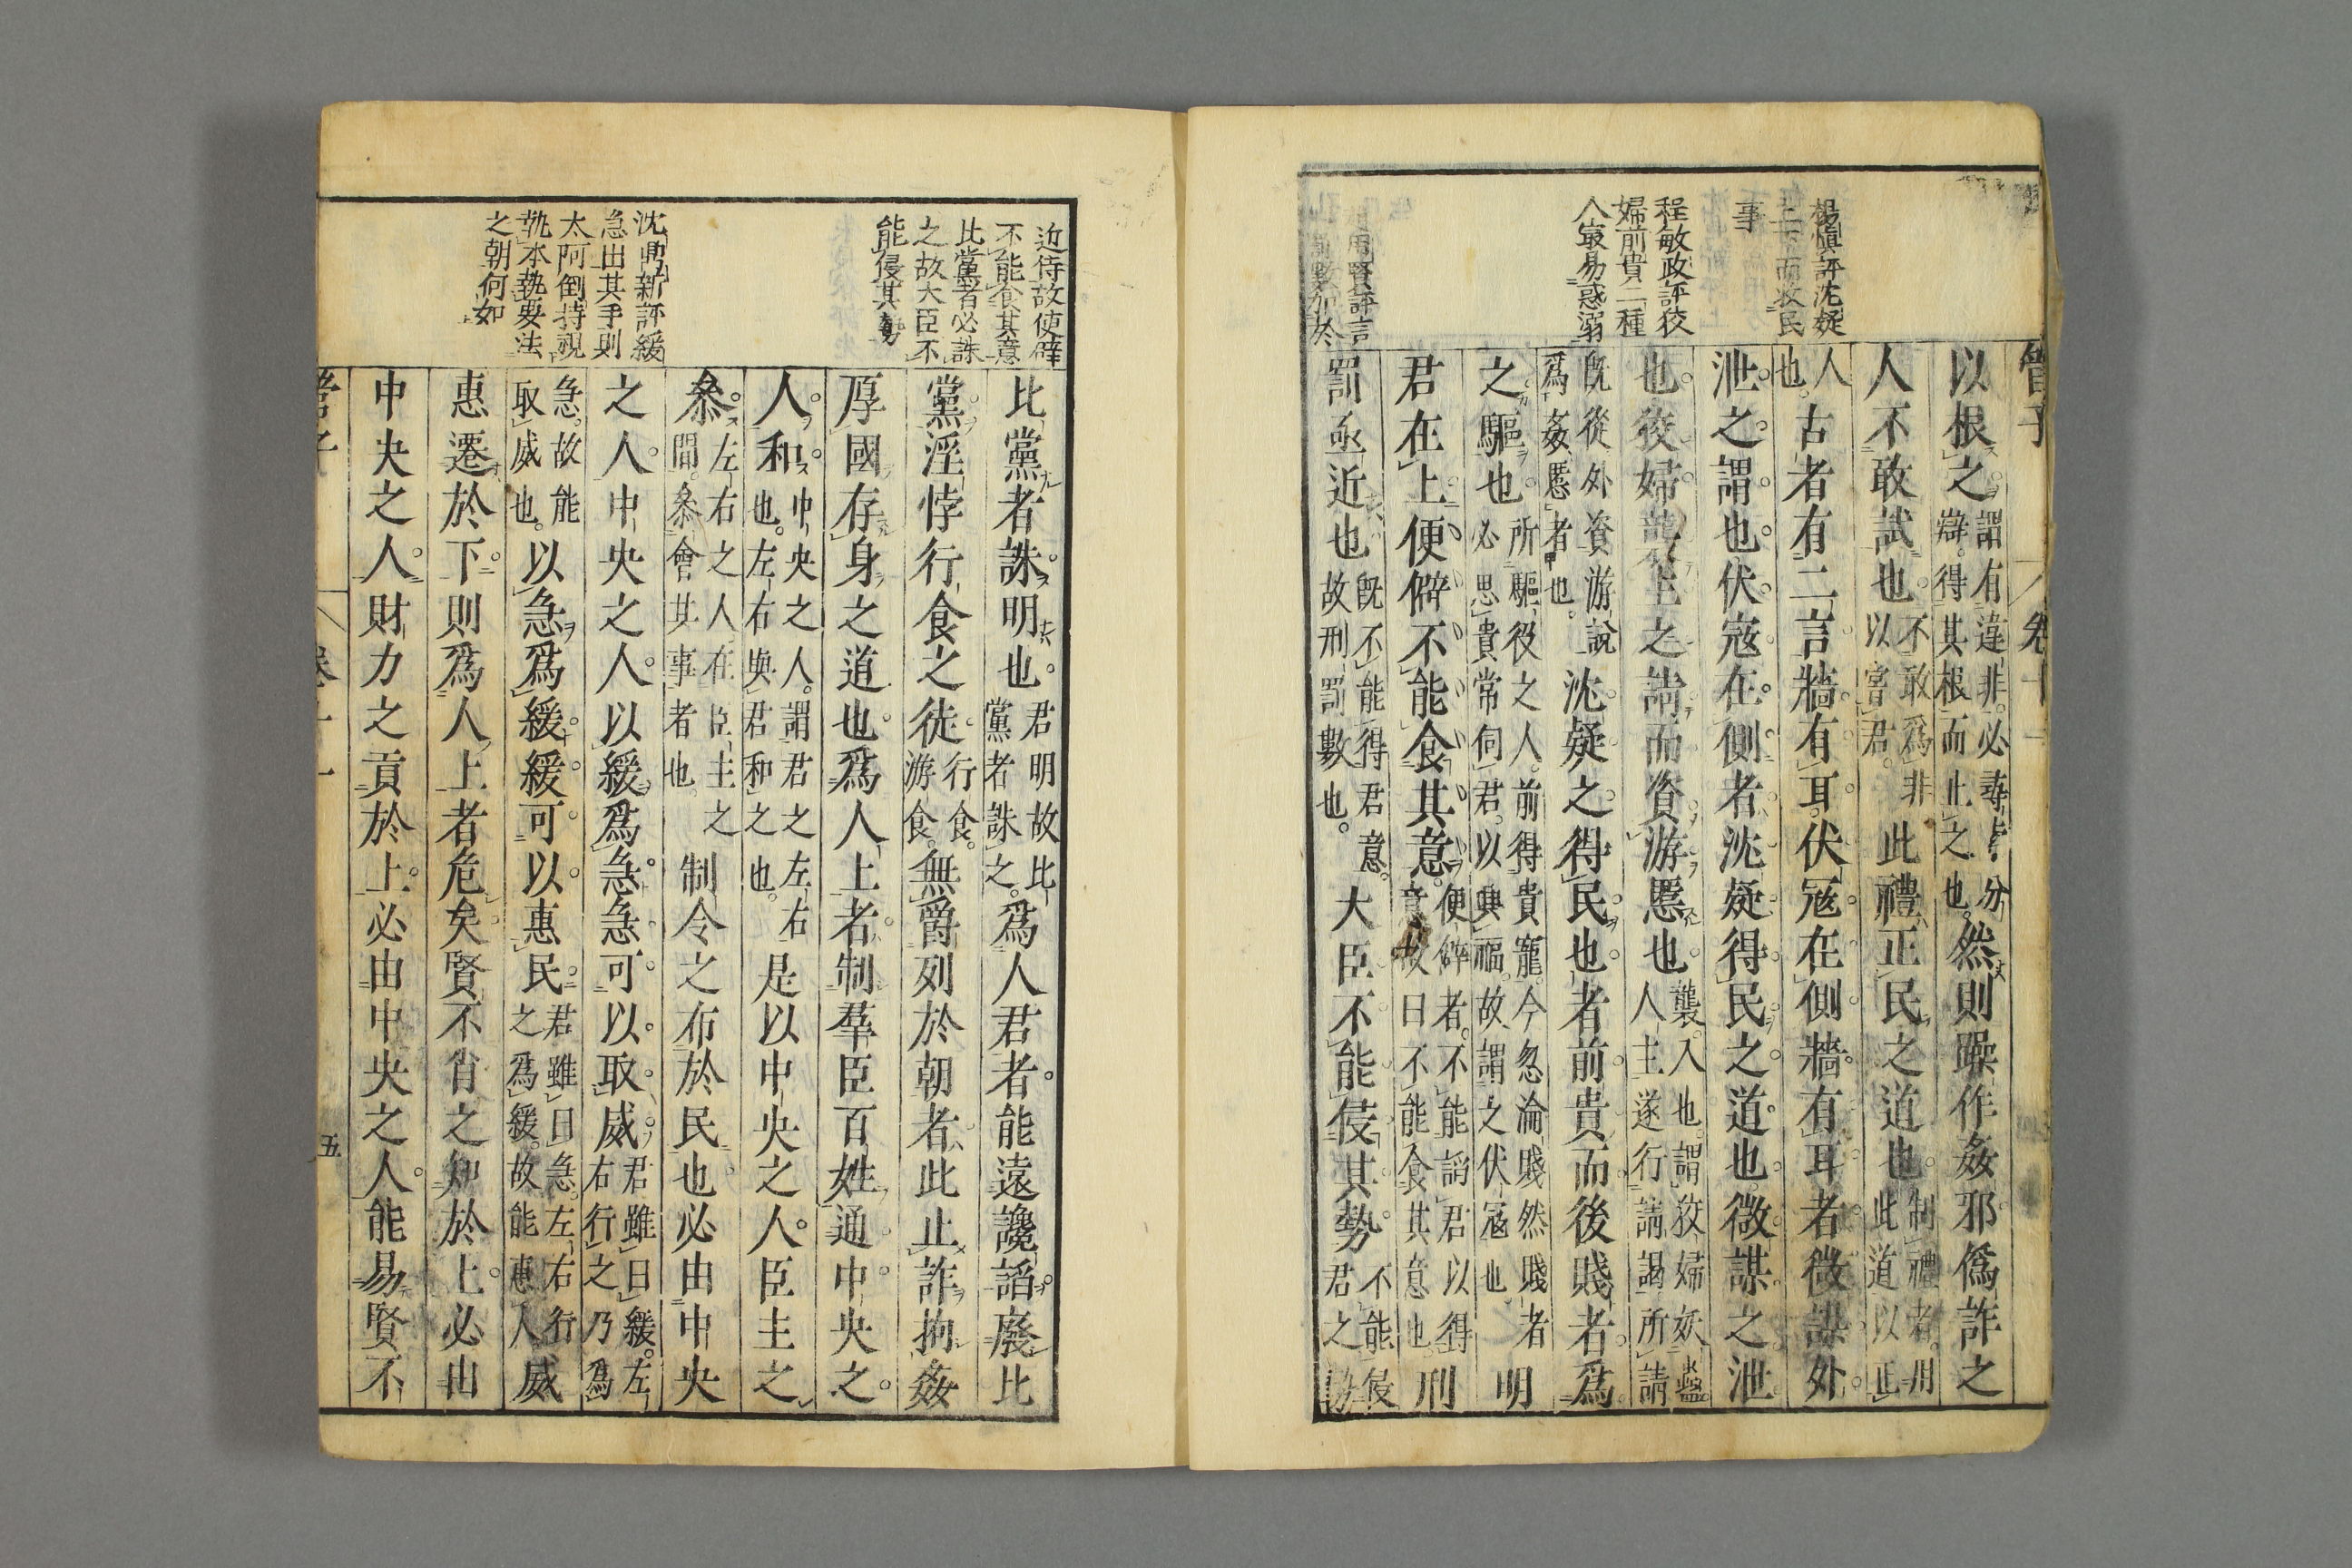 管子
卷十一
楊愼評沈疑
二字而牧民
事
程敏政評狡
婦前貴二種
人最易惑溺
用賢評言
數加於
以根之謂有違非必尋其分
辯得其根而止之也然則躁作姦邪僞詐之
人不敢試也不敢爲非
以嘗君此禮正民之道也制禮者用
此道以正
人
也古者有二言牆有耳伏寇在側牆有耳者微謀外
泄之謂也伏寇在側者沈疑得民之道也微謀之泄
也狡婦襲主之請而資游慝也襲入也謂狡婦妖蠱
人主遂行請謁所請
旣從外資游說
爲姦慝者也沈疑之得民也者前貴而後賤者爲
之驅也所驅役之人前得貴寵今忽淪賤然賤者
必思貴常伺君以興福故謂之伏寇也明
君在上便僻不能食其意便僻者不能謟君以得
意故曰不能食其意也刑
罰亟近也旣不能得君意
故刑罰數也大臣不能侵其勢不能侵
君之勢
近侍故使僻
不能食其意
比黨者必誅
之故大臣不
能侵其勢
沈鼎新評緩
急出其手則
太阿倒持視
執本執要法
之朝何如
比黨者誅明也君明故比
黨者誅之爲人君者能遠讒謟廢比
黨淫悖行食之徒行食
游食無爵列於朝者此止詐拘姦
厚國存身之道也爲人上者制羣臣百姓通中央之
人和中央之人謂君之左右
也左右與君和之也是以中央之人臣主之
參左右之人在臣主之
間參會其事者也制令之布於民也必由中央
之人中央之人以緩爲急急可以取威君雖曰緩左
右行之乃爲
急故能
取威也以急爲緩緩可以惠民君雖曰急左右行
之爲緩故能惠人威
惠遷於下則爲人上者危矣賢不肖之知於上必由
中央之人財力之貢於上必由中央之人能易賢不
管子
卷十一
五